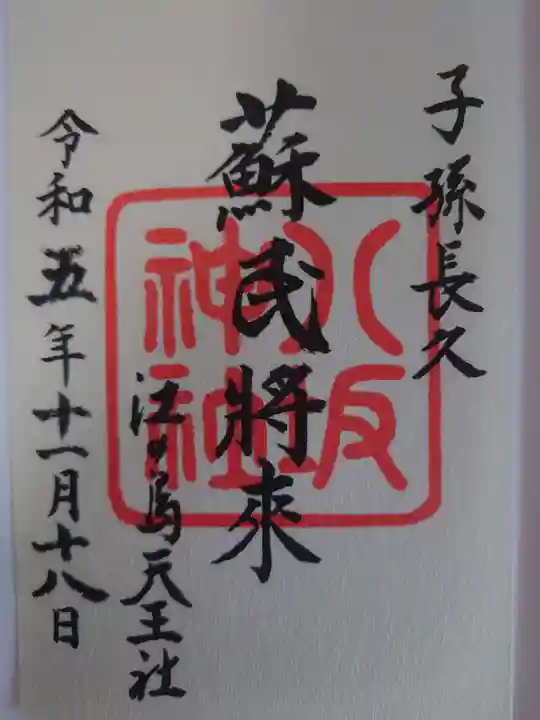 子孫長久
蘇民將來
八坂神社
汪ヶ島天王社
令和五年十一月十八日